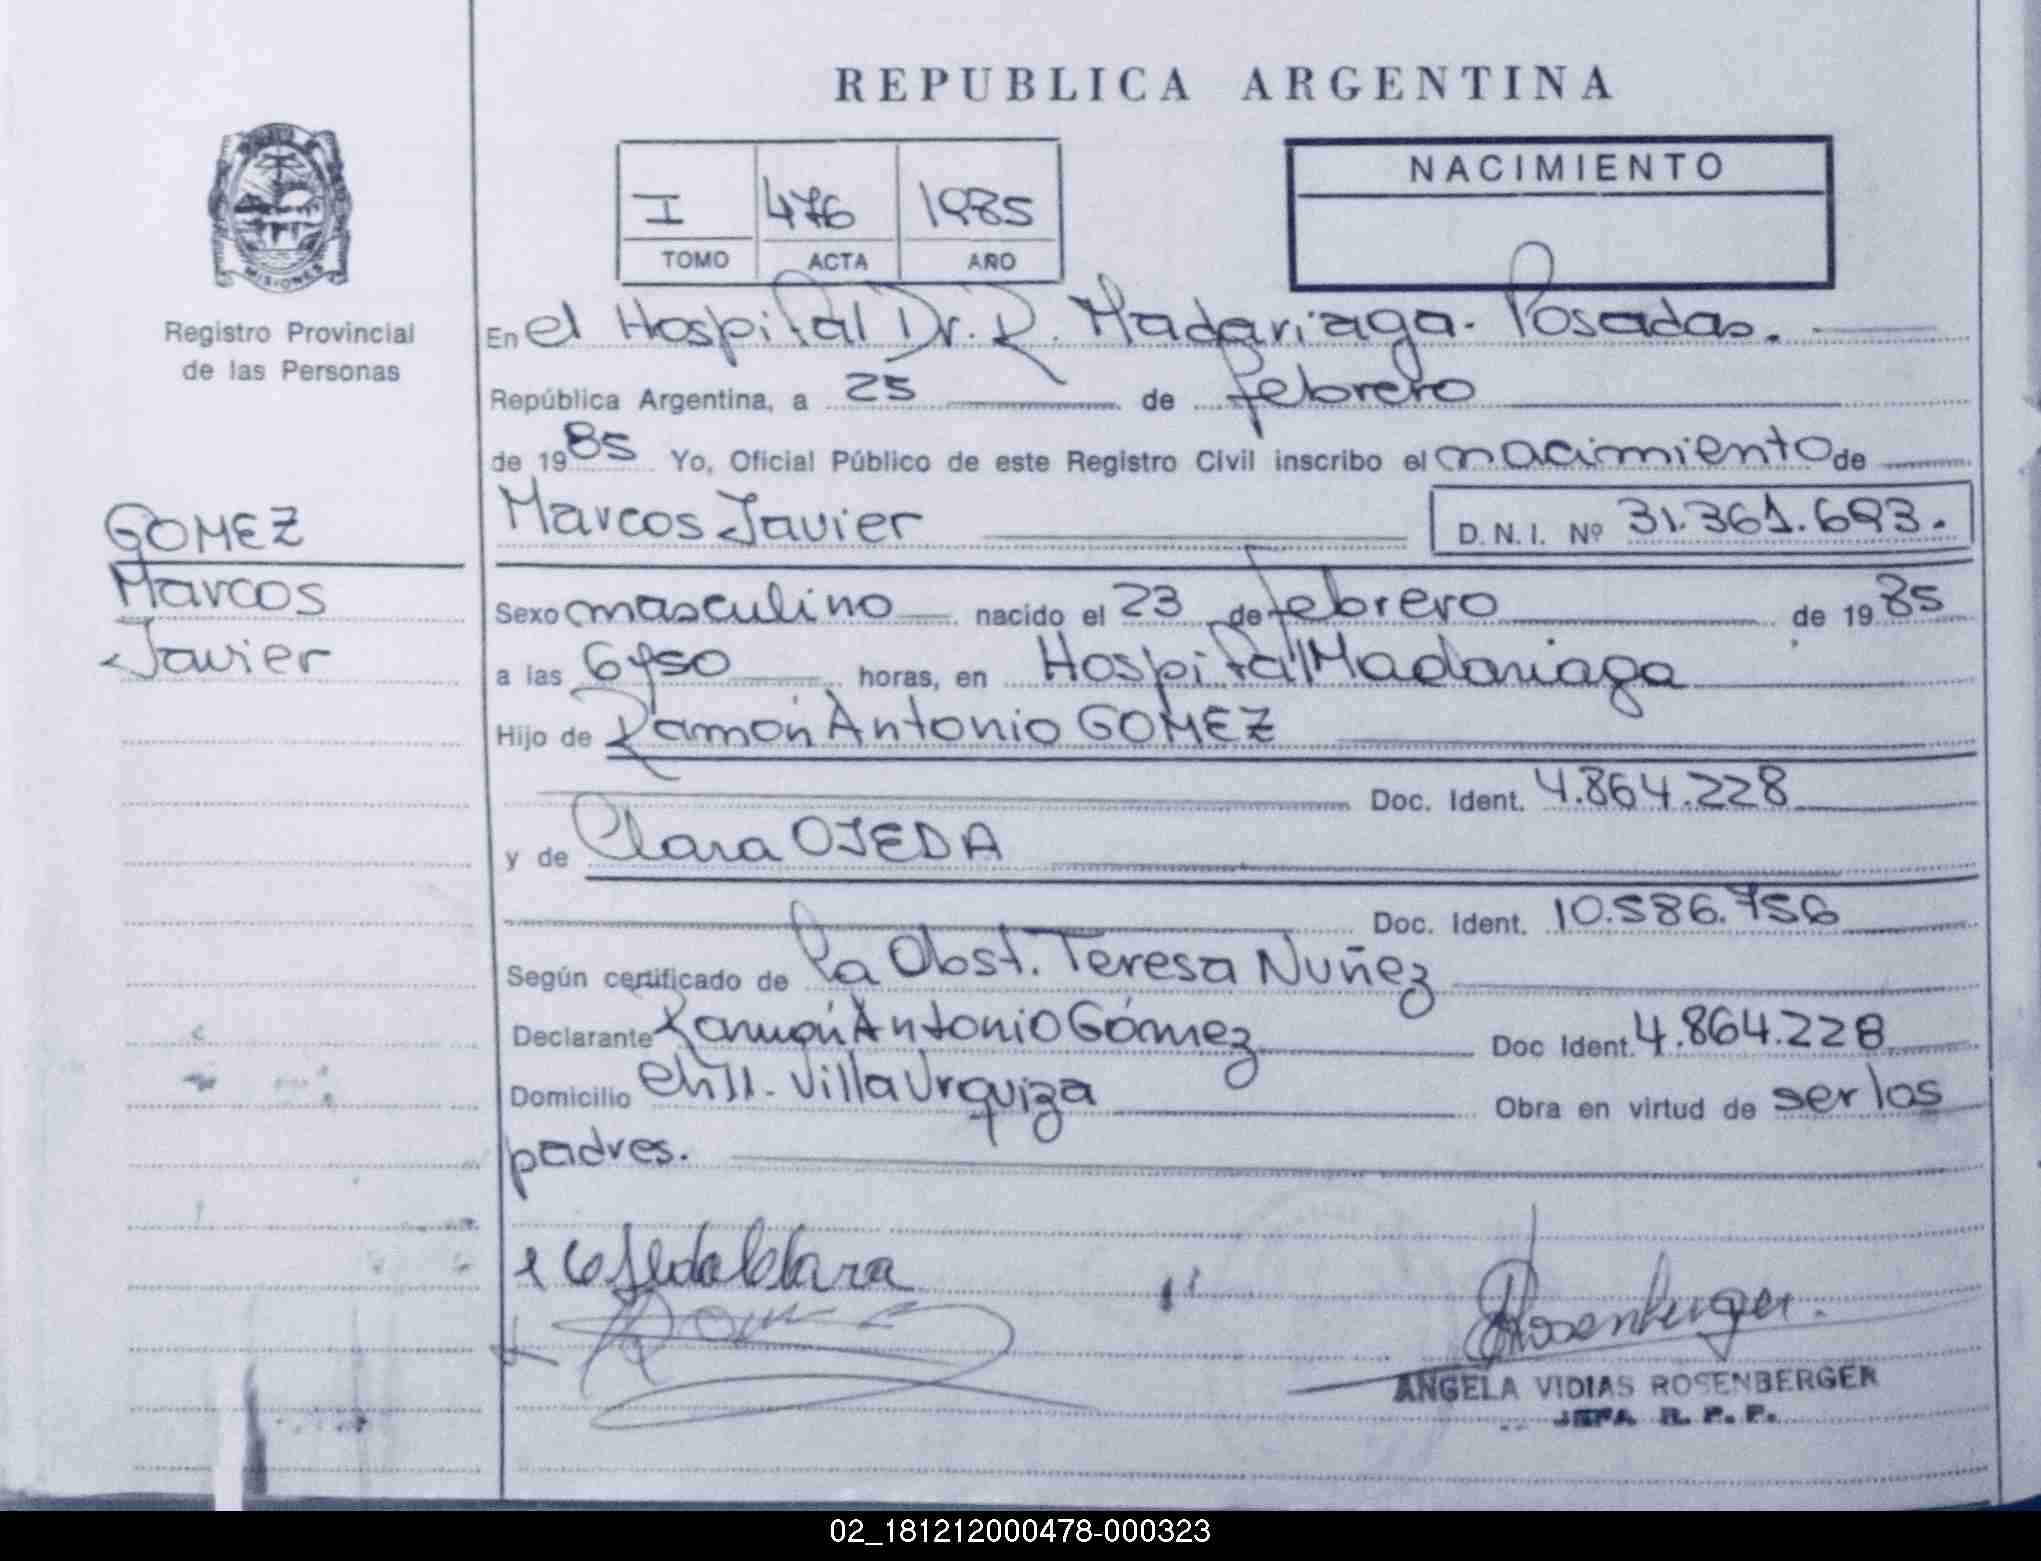 REPUBLICA ARGENTINA
NACIMIENTO
I 476 1985
TOMO ACTA AÑO
MISIONES
Registro Provincial
de las Personas
En el Hospital Dr. R. Madariaga. Posadas.
República Argentina, a 25 de febrero
de 1985 Yo, Oficial Público de este Registro Civil inscribo el nacimiento de
Marcos Javier D.N.I. Nº 31.361.693.
GOMEZ
Marcos
Javier
Sexo masculino nacido el 23 de febrero de 1985
a las 6y50 horas, en Hospital Madariaga
Hijo de Ramón Antonio GOMEZ
Doc. Ident. 4.864.228
y de Clara OJEDA
Doc. Ident. 10.586.756
Según certificado de la Obst. Teresa Nuñez
Declarante Ramón Antonio Gómez Doc Ident. 4.864.228
Domicilio Villa Urquiza Obra en virtud de ser los
padres.
Ojeda Clara
Rosenberger.
ANGELA VIDIAS ROSENBERGER
JEFA R. P. P.
02_181212000478-000323